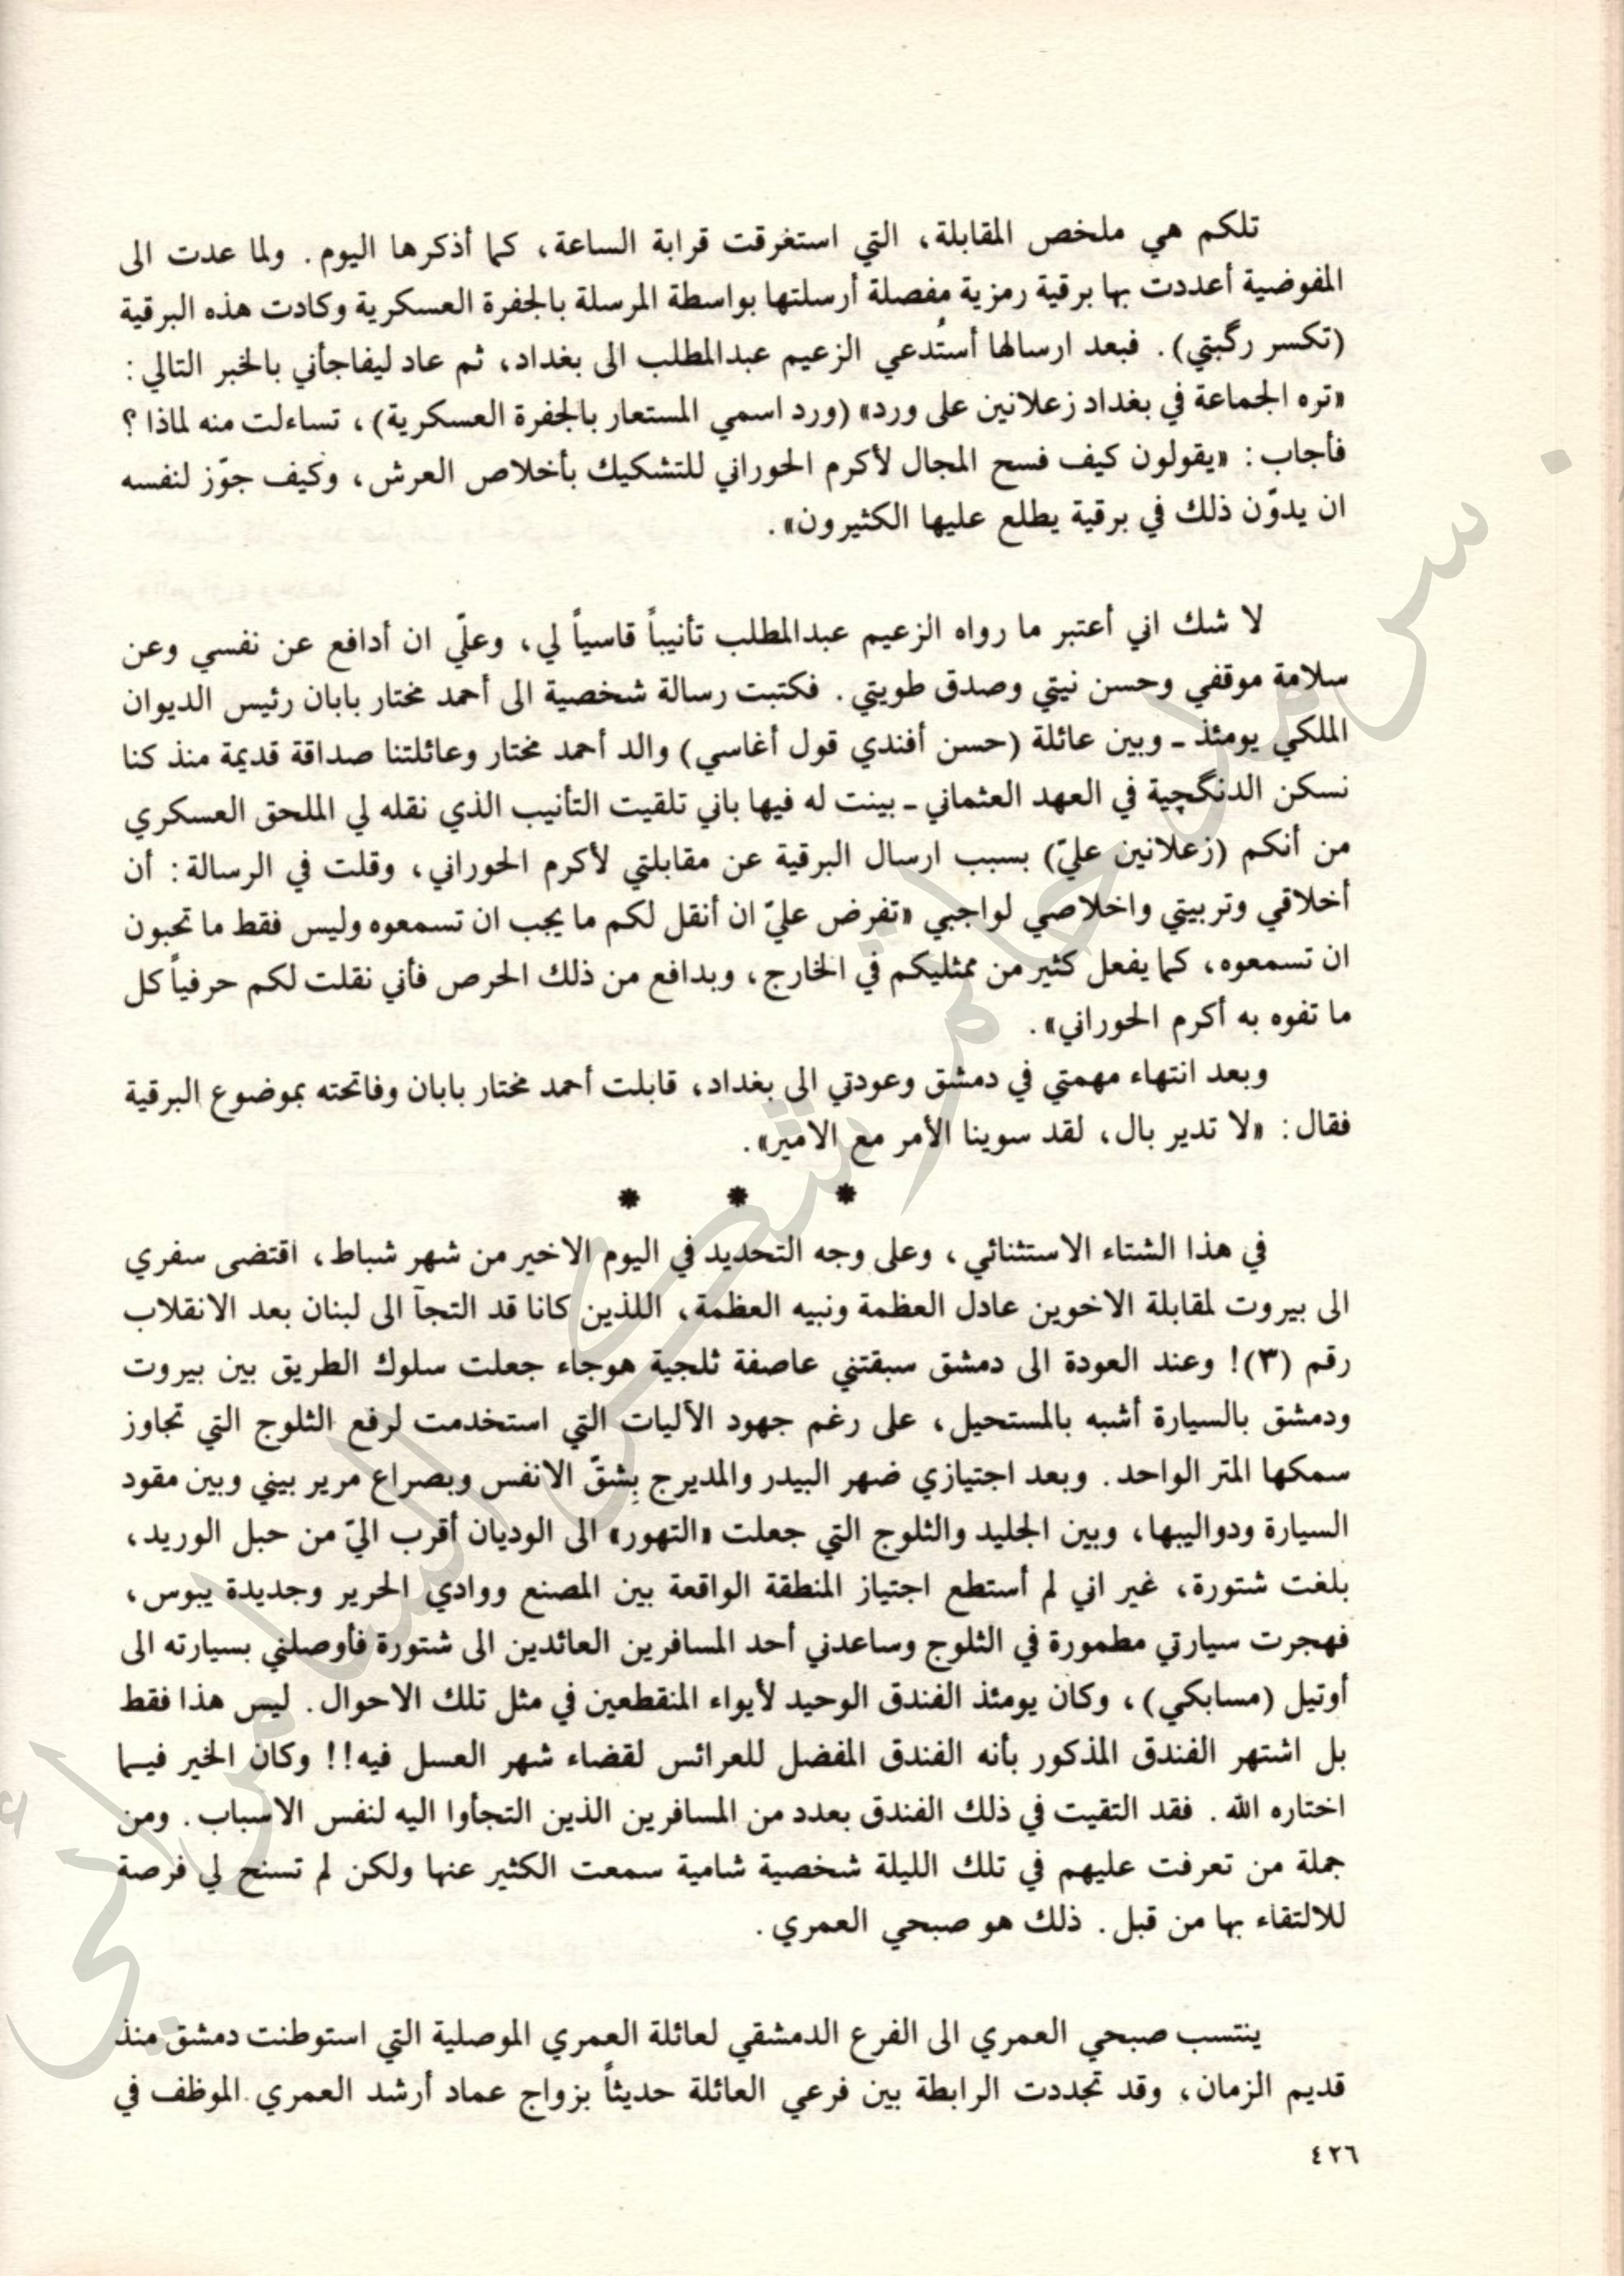 تلكم هي ملخص المقابلة، التي استغرقت قرابة الساعة، كما أذكرها اليوم. ولما عدت الى
المفوضية أعددت بها برقية رمزية مفصلة أرسلتها بواسطة المرسلة بالجفرة العسكرية وكادت هذه البرقية
(تكسر رگبتي). فبعد ارسالها أستُدعي الزعيم عبدالمطلب الى بغداد، ثم عاد ليفاجأني بالخبر التالي:
«تره الجماعة في بغداد زعلانين على ورد» (ورد اسمي المستعار بالجفرة العسكرية)، تساءلت منه لماذا؟
فأجاب: «يقولون كيف فسح المجال لأكرم الحوراني للتشكيك بأخلاص العرش، وكيف جوّز لنفسه
ان يدوّن ذلك في برقية يطلع عليها الكثيرون».
لا شك اني أعتبر ما رواه الزعيم عبدالمطلب تأنيباً قاسياً لي، وعلّي ان أدافع عن نفسي وعن
سلامة موقفي وحسن نيتي وصدق طويتي. فكتبت رسالة شخصية الى أحمد مختار بابان رئيس الديوان
الملكي يومئذ ـ وبين عائلة (حسن أفندي قول أغاسي) والد أحمد مختار وعائلتنا صداقة قديمة منذ كنا
نسكن الدنگچية في العهد العثماني ـ بينت له فيها باني تلقيت التأنيب الذي نقله لي الملحق العسكري
من أنكم (زعلانين عليّ) بسبب ارسال البرقية عن مقابلتي لأكرم الحوراني، وقلت في الرسالة: أن
أخلاقي وتربيتي واخلاصي لواجبي «تفرض عليّ ان أنقل لكم ما يجب ان تسمعوه وليس فقط ما تحبون
ان تسمعوه، كما يفعل كثير من ممثليكم في الخارج، وبدافع من ذلك الحرص فأني نقلت لكم حرفياً كل
ما تفوه به أكرم الحوراني».
وبعد انتهاء مهمتي في دمشق وعودتي الى بغداد، قابلت أحمد مختار بابان وفاتحته بموضوع البرقية
فقال: «لا تدير بال، لقد سوينا الأمر مع الامير».
* * *
في هذا الشتاء الاستثنائي، وعلى وجه التحديد في اليوم الاخير من شهر شباط، اقتضى سفري
الى بيروت لمقابلة الاخوين عادل العظمة ونبيه العظمة، اللذين كانا قد التجآ الى لبنان بعد الانقلاب
رقم (٣)! وعند العودة الى دمشق سبقتني عاصفة ثلجية هوجاء جعلت سلوك الطريق بين بيروت
ودمشق بالسيارة أشبه بالمستحيل، على رغم جهود الآليات التي استخدمت لرفع الثلوج التي تجاوز
سمكها المتر الواحد. وبعد اجتيازي ضهر البيدر والمديرج بِشقّ الانفس وبصراع مرير بيني وبين مقود
السيارة ودواليبها، وبين الجليد والثلوج التي جعلت «التهور» الى الوديان أقرب اليّ من حبل الوريد،
بلغت شتورة، غير اني لم أستطع اجتياز المنطقة الواقعة بين المصنع ووادي الحرير وجديدة يبوس،
فهجرت سيارتي مطمورة في الثلوج وساعدني أحد المسافرين العائدين الى شتورة فأوصلني بسيارته الى
أوتيل (مسابكي)، وكان يومئذ الفندق الوحيد لأيواء المنقطعين في مثل تلك الاحوال. ليس هذا فقط
بل اشتهر الفندق المذكور بأنه الفندق المفضل للعرائس لقضاء شهر العسل فيه!! وكان الخير فيما
اختاره الله. فقد التقيت في ذلك الفندق بعدد من المسافرين الذين التجأوا اليه لنفس الاسباب. ومن
جملة من تعرفت عليهم في تلك الليلة شخصية شامية سمعت الكثير عنها ولكن لم تسنح لي فرصة
للالتقاء بها من قبل. ذلك هو صبحي العمري.
ينتسب صبحي العمري الى الفرع الدمشقي لعائلة العمري الموصلية التي استوطنت دمشق منذ
قديم الزمان، وقد تجددت الرابطة بين فرعي العائلة حديثاً بزواج عماد أرشد العمري الموظف في
٤٢٦